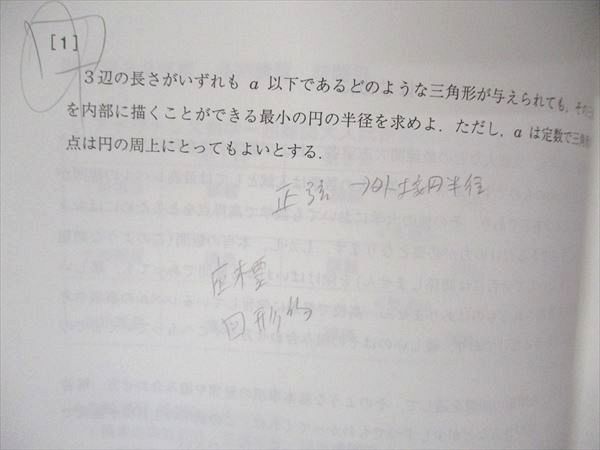 [1]
3辺の長さがいずれも a 以下であるどのような三角形が与えられても，その
を内部に描くことができる最小の円の半径を求めよ．ただし，a は定数で三角
点は円の周上にとってもよいとする．
正弦 →外接円半径
座標
図形的